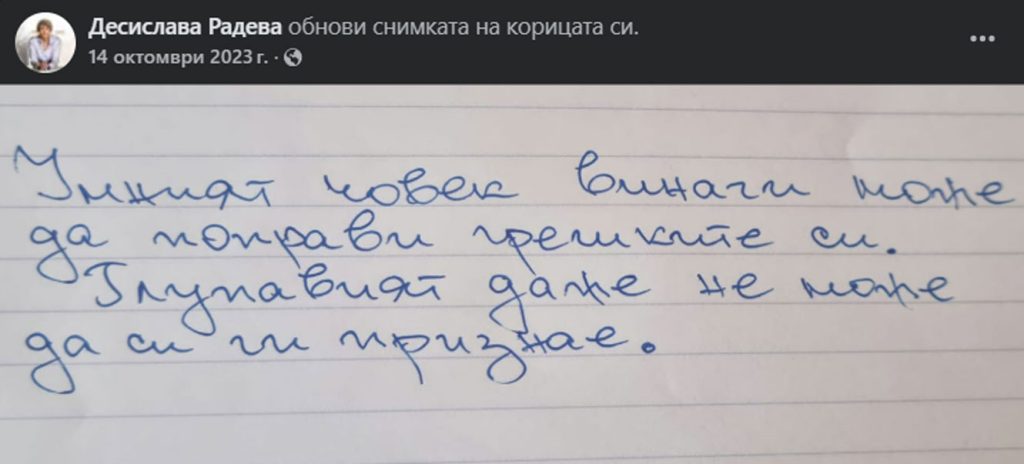 Десислава Радева обнови снимката на корицата си.
14 октомври 2023 г. ·
Умният човек винаги може
да поправи грешките си.
Глупавият даже не може
да си ги признае.